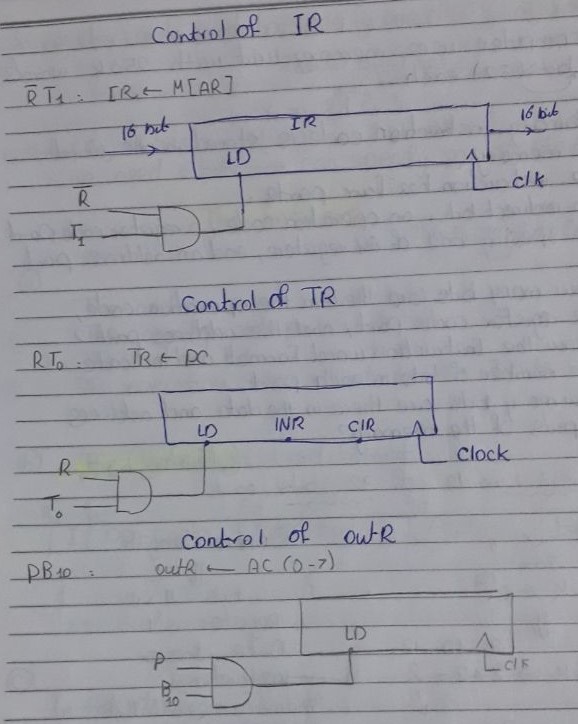 Control of IR
R̅T₁ : IR ← M[AR]
16 bit IR 16 bit
LD
R̅ clk
T₁
Control of TR
RT₀ : TR ← PC
LD INR CIR
R Clock
T₀
Control of outR
PB₁₀ : outR ← AC (0-7)
LD
P clk
B₁₀